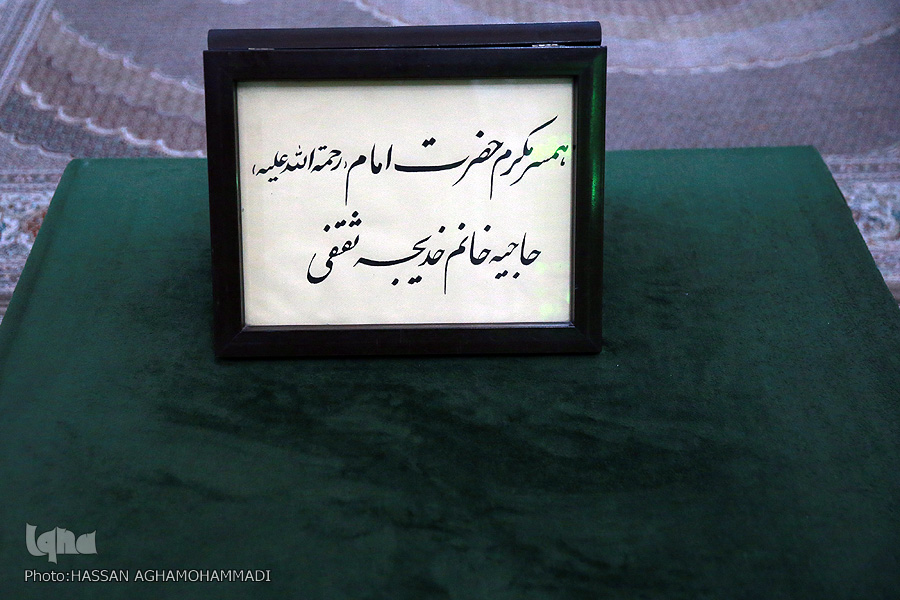 همسر مکرم حضرت امام (رحمة الله علیه)
حاجیه خانم خدیجه ثقفی
iqna
Photo:HASSAN AGHAMOHAMMADI